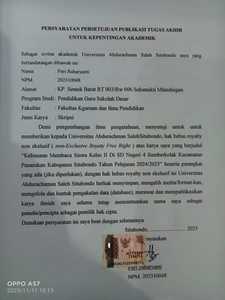 PERNYATAAN PERSETUJUAN PUBLIKASI TUGAS AKHIR
UNTUK KEPENTINGAN AKADEMIK
Sebagai civitas akademik Universitas Abdurachman Saleh Situbondo saya yang
bertandatangan dibawah ini:
Nama : Fitri Suharyanti
NPM :
Alamat : KP. Semek Barat RT 003/Rw 006
Program Studi : Pendidikan Guru Sekolah Dasar
Fakultas : Fakultas Keguruan dan Ilmu Pendidikan
Jenis Karya : Skripsi
Demi pengembangan ilmu pengetahuan, menyetujui untuk
memberikan kepada Universitas Abdurachman Saleh Situbondo, hak bebas royalty
non eksklusif ( non-Exclusive Royalty Free Right ) atas karya saya yang berjudul
"Kelemahan Membaca Siswa Kelas II Di SD Negeri 4 Sumberkolak Kecamatan
Panarukan Kabupaten Situbondo Tahun Pelajaran 2024/2025" beserta perangkat
yang ada (jika diperlukan), dengan hak bebas royalty non eksklusif ini Universitas
Abdurachman Saleh Situbondo berhak menyimpan, mengalih media/format kan,
mengelola dan bentuk pangkalan data (database), merawat dan mempublikasikan
karya ilmiah saya selama tetap mencantumkan nama saya sebagai
penulis/pencipta sebagai pemilik hak cipta.
Demikian pernyataan ini saya buat dengan sebenarnya
Situbondo, 2025
FITRI SUHARYANTI
NPM.
OPPO A57
2025/11/11 10:13